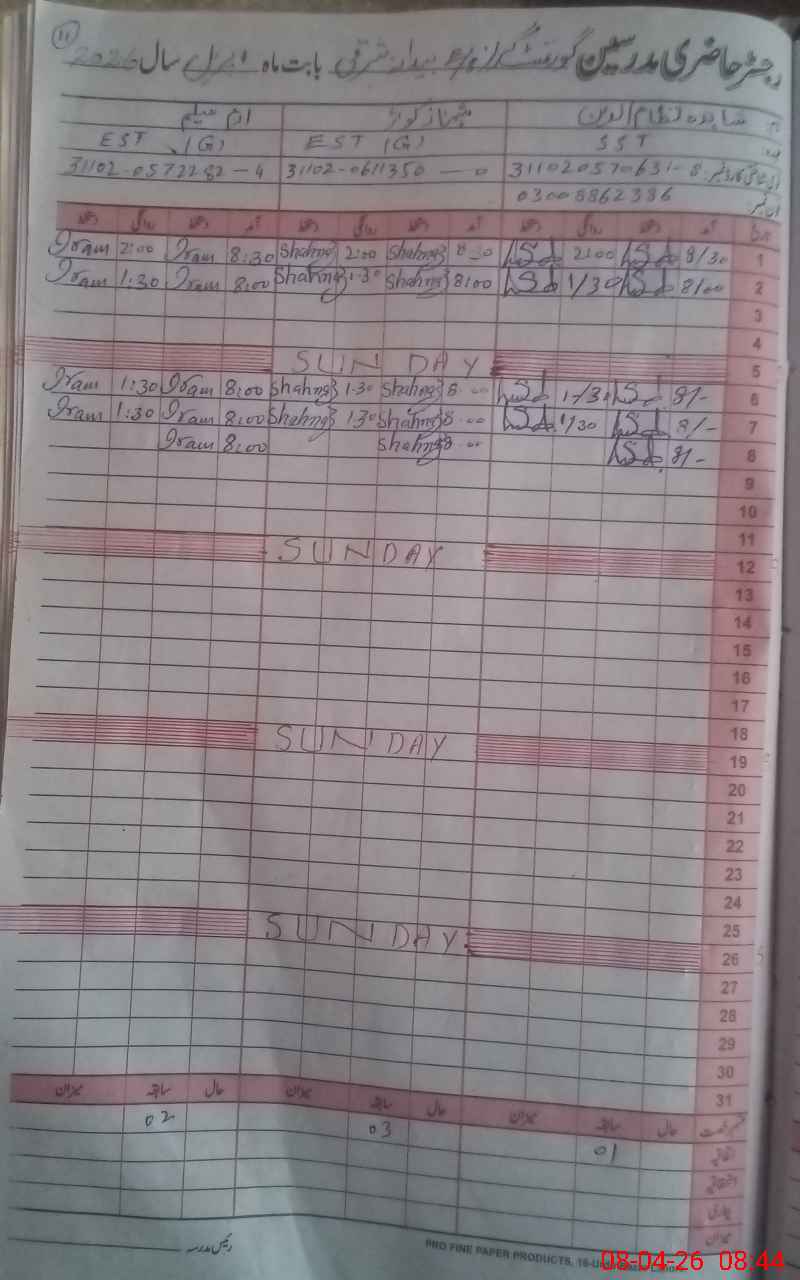 11
رجسٹر حاضری مدرسین گورنمنٹ گرلز بیدار شرقی بابت ماہ اپریل سال 2026
شاہدہ نظام الدین شہناز کوثر ارم سلیم
SST EST (G) EST (G)
31102-0570631-8 31102-0611350-0 31102-0572282-4
03008862386
آمد دستخط روانگی دستخط آمد دستخط روانگی دستخط آمد دستخط روانگی دستخط
1 8/30 2:00 8:30 Shahnaz 2:00 Shahnaz 8:30 Iram 2:00 Iram
2 8/00 1/30 8:00 Shahnaz 1:30 Shahnaz 8:00 Iram 1:30 Iram
3
4
5 SUNDAY
6 8/- 1/30 8:00 Shahnaz 1:30 Shahnaz 8:00 Iram 1:30 Iram
7 8/- 1/30 8:00 Shahnaz 1:30 Shahnaz 8:00 Iram 1:30 Iram
8 8/- 8:00 Shahnaz 8:00 Iram
9
10
11
12 SUNDAY
13
14
15
16
17
18
19 SUNDAY
20
21
22
23
24
25
26 SUNDAY
27
28
29
30
31
قسم رخصت حال سابقہ میزان حال سابقہ میزان حال سابقہ میزان
اتفاقیہ 01 03 02
بیماری
میزان
رئیس مدرسہ
PRO FINE PAPER PRODUCTS, 16-U
08-04-26 08:44